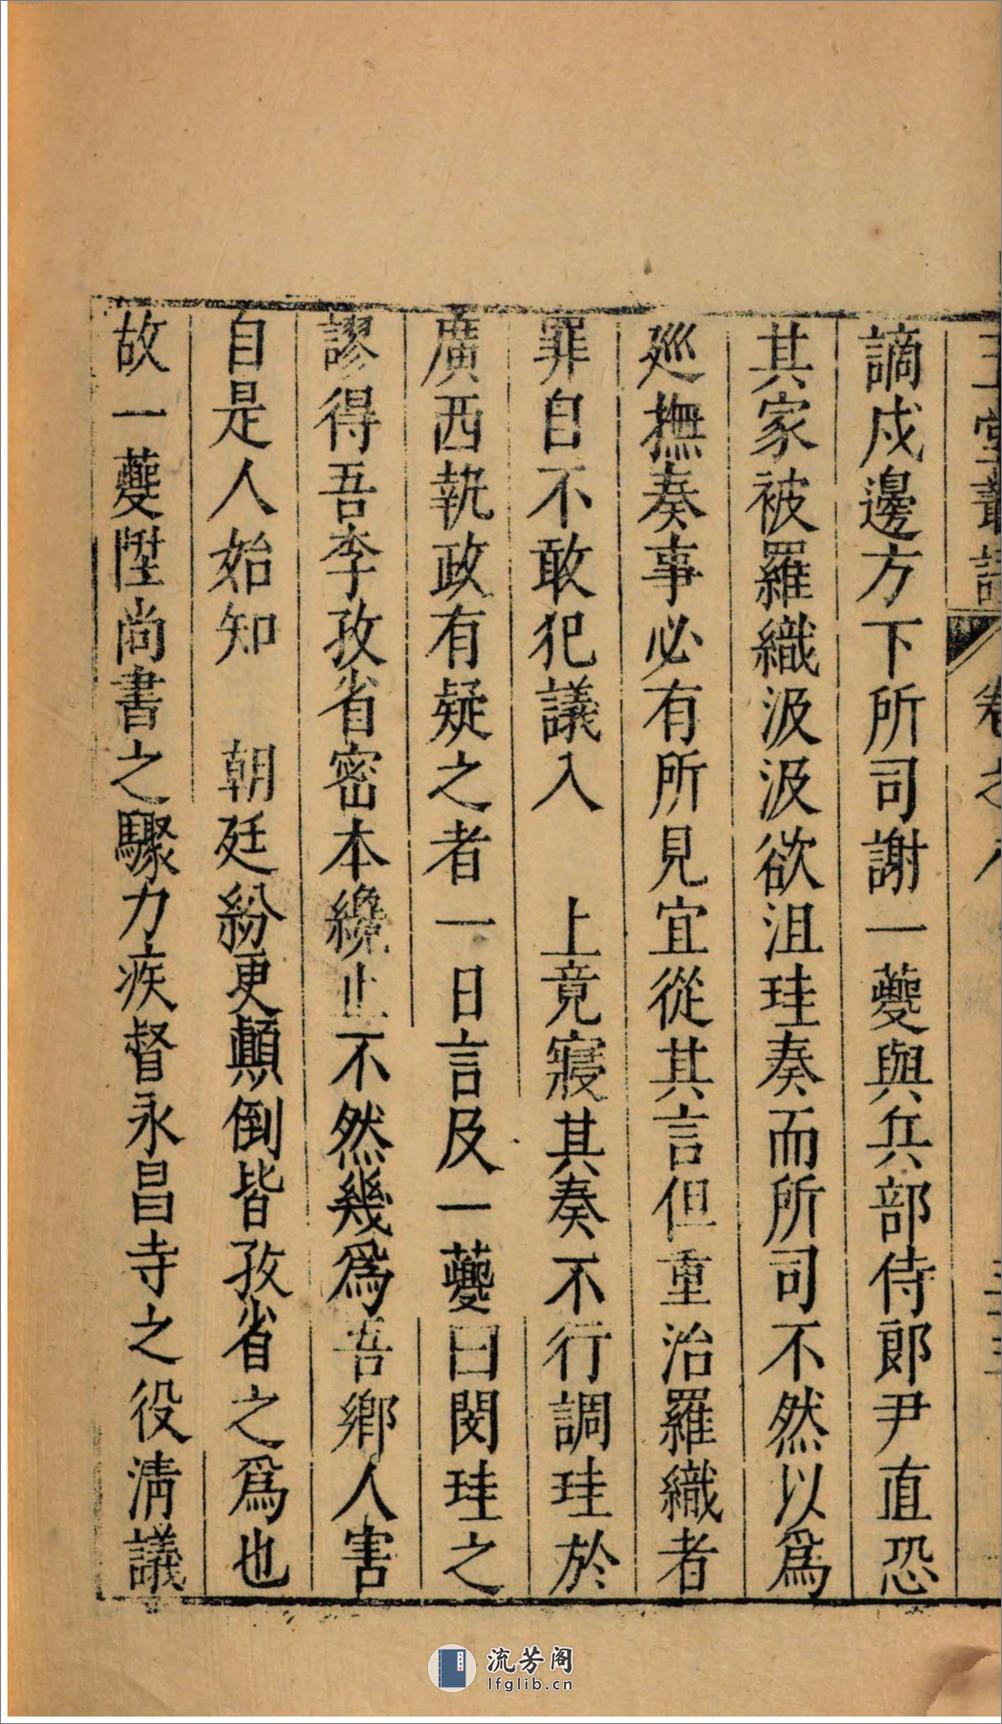 玉堂叢語 卷之八
謫戍邊方下所司謝一夔與兵部侍郎尹直恐
其家被羅織汲汲欲沮珪奏而所司不然以爲
廵撫奏事必有所見宜從其言但重治羅織者
罪自不敢犯議入　上竟寢其奏不行調珪於
廣西執政有疑之者一日言及一夔曰閔珪之
謬得吾李孜省密本纔止不然幾爲吾鄉人害
自是人始知　朝廷紛更顛倒皆孜省之爲也
故一夔陞尚書之驟力疾督永昌寺之役淸議
流芳阁
lfglib.cn